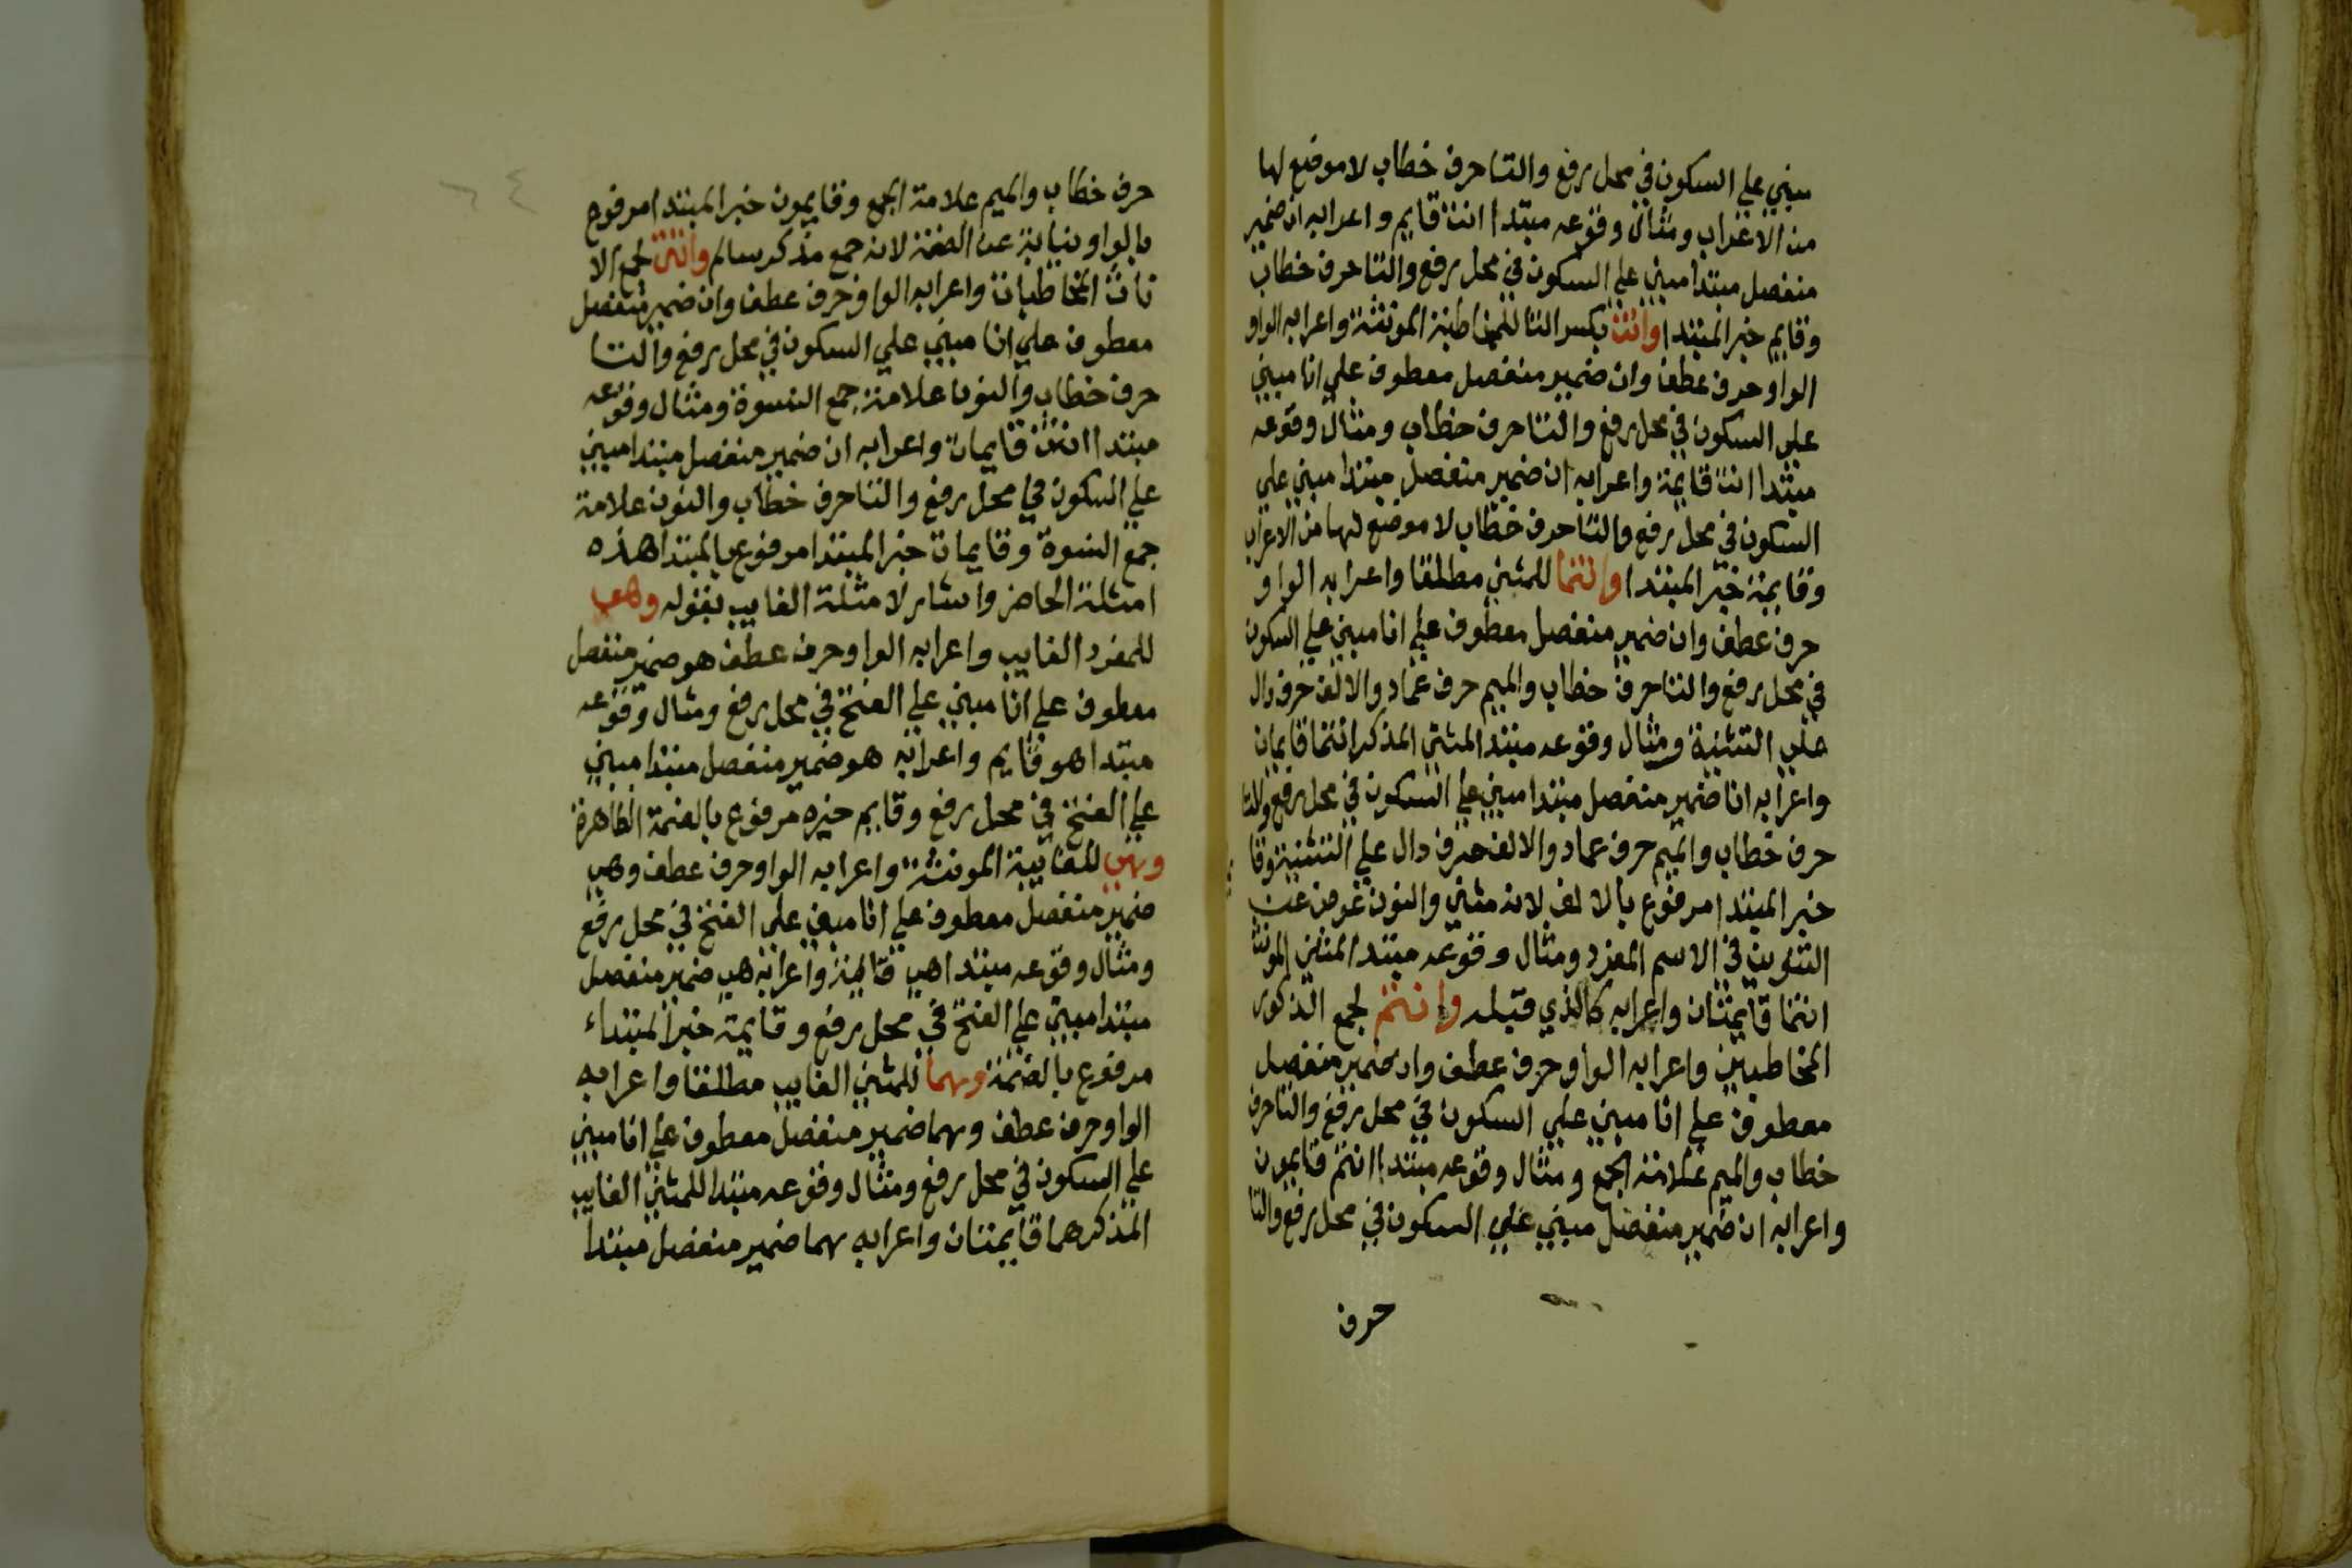 مبني علي السكون في محل رفع والتا حرف خطاب لا موضع لها
من الاعراب ومثال وقوعه مبتدا انت قايم واعرابه ان ضمير
منفصل مبتدا مبني علي السكون في محل رفع والتا حرف خطاب
وقايم خبر المبتدا وانت بكسر التا للمخاطبة المونثة واعرابه الواو
الواو حرف عطف وان ضمير منفصل معطوف علي انا مبني
علي السكون في محل رفع والتا حرف خطاب ومثال وقوعه
مبتدا انت قايمة واعرابه ان ضمير منفصل مبتدا مبني علي
السكون في محل رفع والتا حرف خطاب لا موضع لها من الاعراب
وقايمة خبر المبتدا وانتما للمثني مطلقا واعرابه الواو
حرف عطف وان ضمير منفصل معطوف علي انا مبني علي السكون
في محل رفع والتا حرف خطاب والميم حرف عماد والالف حرف دال
علي التثنية ومثال وقوعه مبتدا المثني المذكر انتما قايمان
واعرابه انا ضمير منفصل مبتدا مبني علي السكون في محل رفع والتا
حرف خطاب والميم حرف عماد والالف حرف دال علي التثنية وقا
خبر المبتدا مرفوع بالالف لانه مثني والنون عوض عن
التنوين في الاسم المفرد ومثال وقوعه مبتدا المثني المونث
انتما قايمتان واعرابه كالذي قبله وانتم لجمع الذكور
المخاطبين واعرابه الواو حرف عطف وان ضمير منفصل
معطوف علي انا مبني علي السكون في محل رفع والتا حرف
خطاب والميم علامة الجمع ومثال وقوعه مبتدا انتم قايمون
واعرابه ان ضمير منفصل مبني علي السكون في محل رفع والتا
حرف
٦٤
حرف خطاب والميم علامة الجمع وقايمون خبر المبتدا مرفوع
بالواو نيابة عن الضمة لانه جمع مذكر سالم وانتن لجمع الا
ناث المخاطبات واعرابه الواو حرف عطف وان ضمير منفصل
معطوف علي انا مبني علي السكون في محل رفع والتا
حرف خطاب والنون علامة جمع النسوة ومثال وقوعه
مبتدا انتن قايمات واعرابه ان ضمير منفصل مبتدا مبني
علي السكون في محل رفع والتا حرف خطاب والنون علامة
جمع النسوة وقايمات خبر المبتدا مرفوع بالمبتدا هذه
امثلة الحاضر واشار لامثلة الغايب بقوله وهو
للمفرد الغايب واعرابه الواو حرف عطف هو ضمير منفصل
معطوف علي انا مبني علي الفتح في محل رفع ومثال وقوعه
مبتدا هو قايم واعرابه هو ضمير منفصل مبتدا مبني
علي الفتح في محل رفع وقايم خبره مرفوع بالضمة الظاهرة
وهي للغايبة المونثة واعرابه الواو حرف عطف وهي
ضمير منفصل معطوف علي انا مبني علي الفتح في محل رفع
ومثال وقوعه مبتدا هي قايمة واعرابه هي ضمير منفصل
مبتدا مبني علي الفتح في محل رفع وقايمة خبر المبتداء
مرفوع بالضمة وهما للمثني الغايب مطلقا واعرابه
الواو حرف عطف وهما ضمير منفصل معطوف علي انا مبني
علي السكون في محل رفع ومثال وقوعه مبتدا للمثني الغايب
المذكر هما قايمتان واعرابه هما ضمير منفصل مبتدا